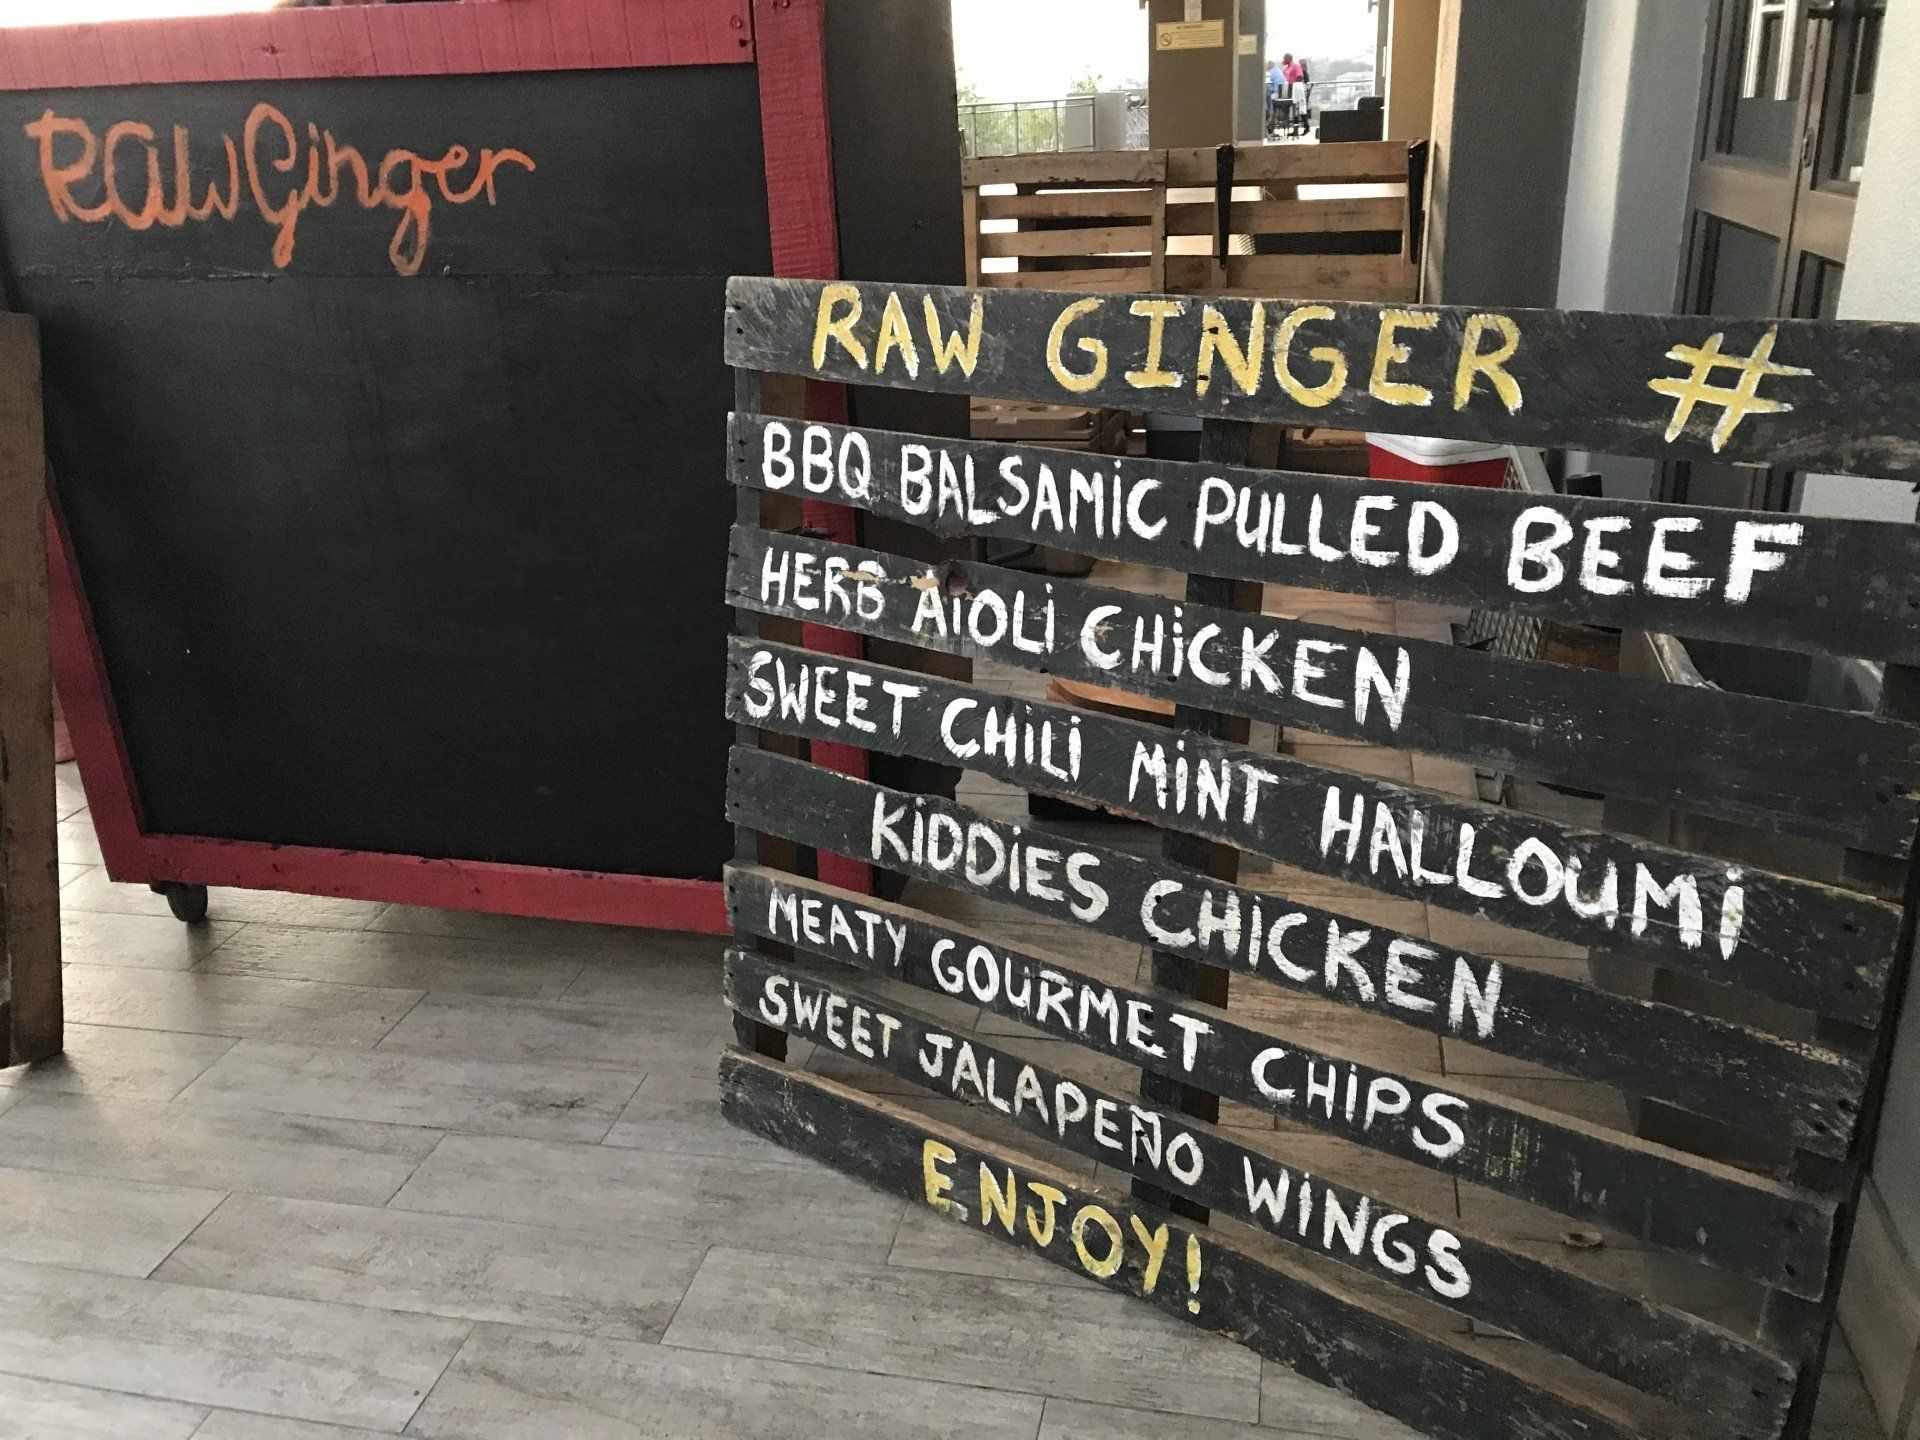 Raw Ginger
RAW GINGER #
BBQ BALSAMiC PULLED BEEF
HERB AiOLi CHiCKEN
SWEET CHiLi MiNT HALLOUMi
KiDDiES CHiCKEN
MEATY GOURMET CHiPS
SWEET JALAPEÑO WiNGS
ENJOY!